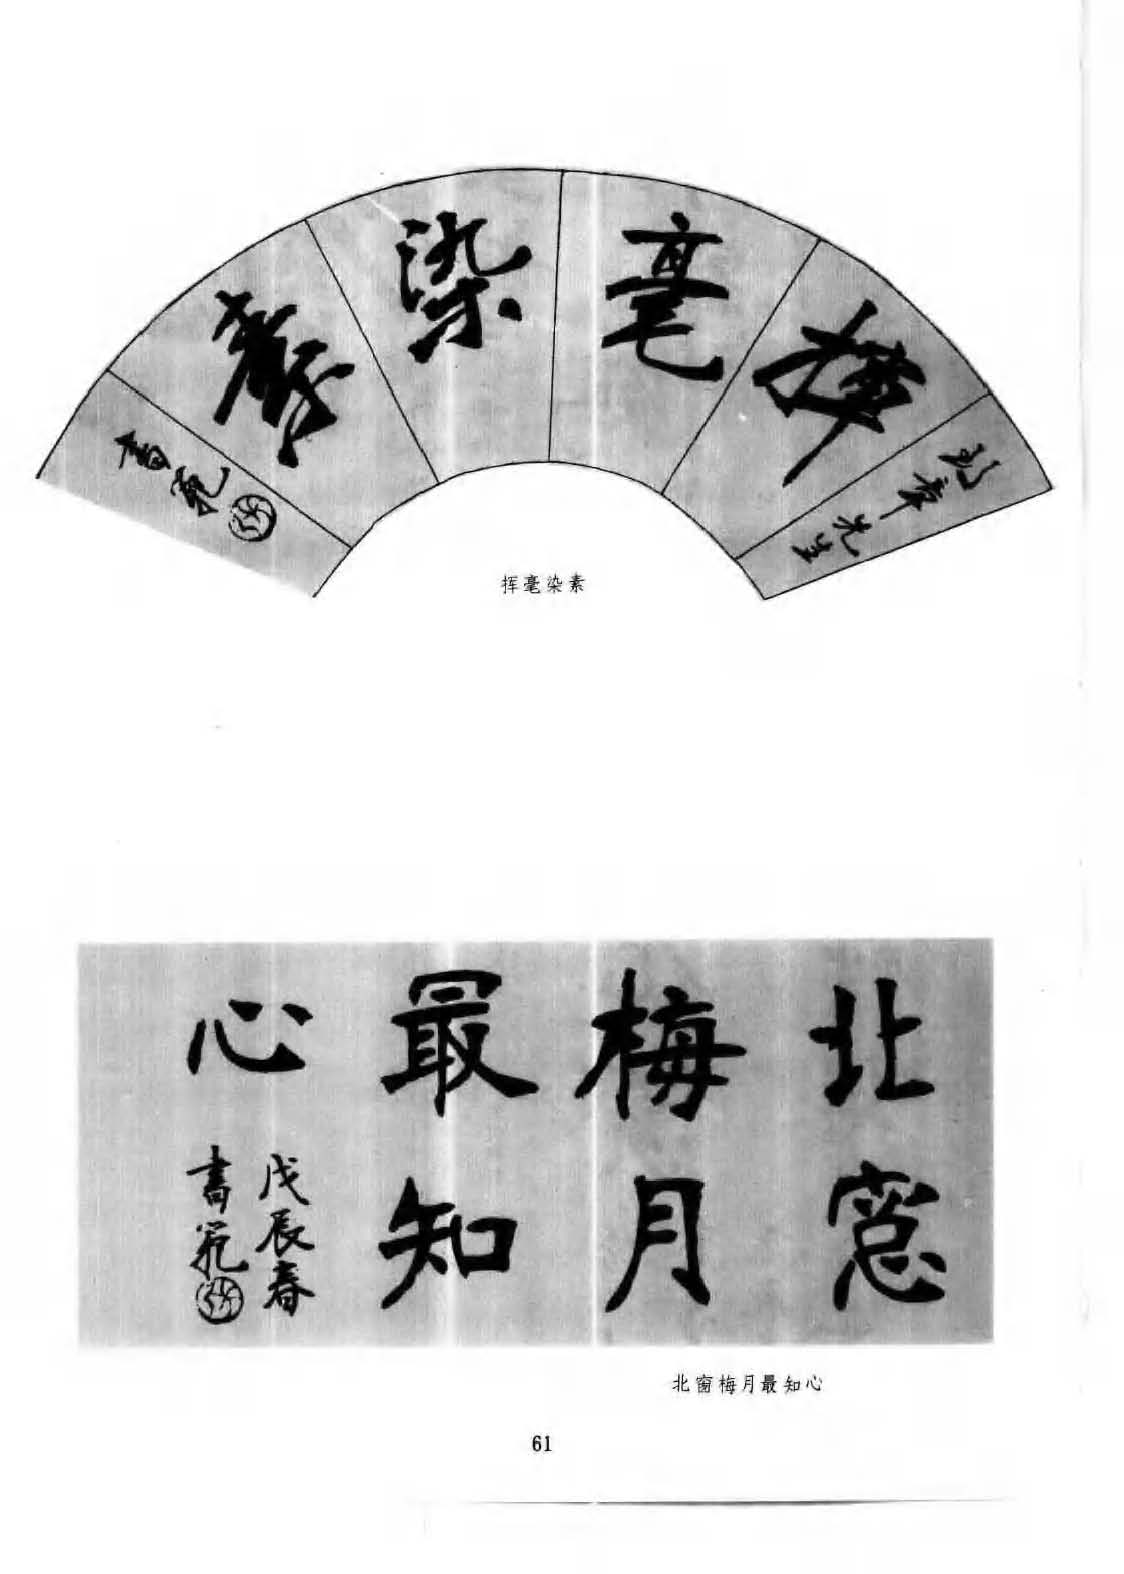 揮毫染素
先生
書
挥毫染素
北窓
梅月
最知
心
戊辰春
書
北窗梅月最知心
61